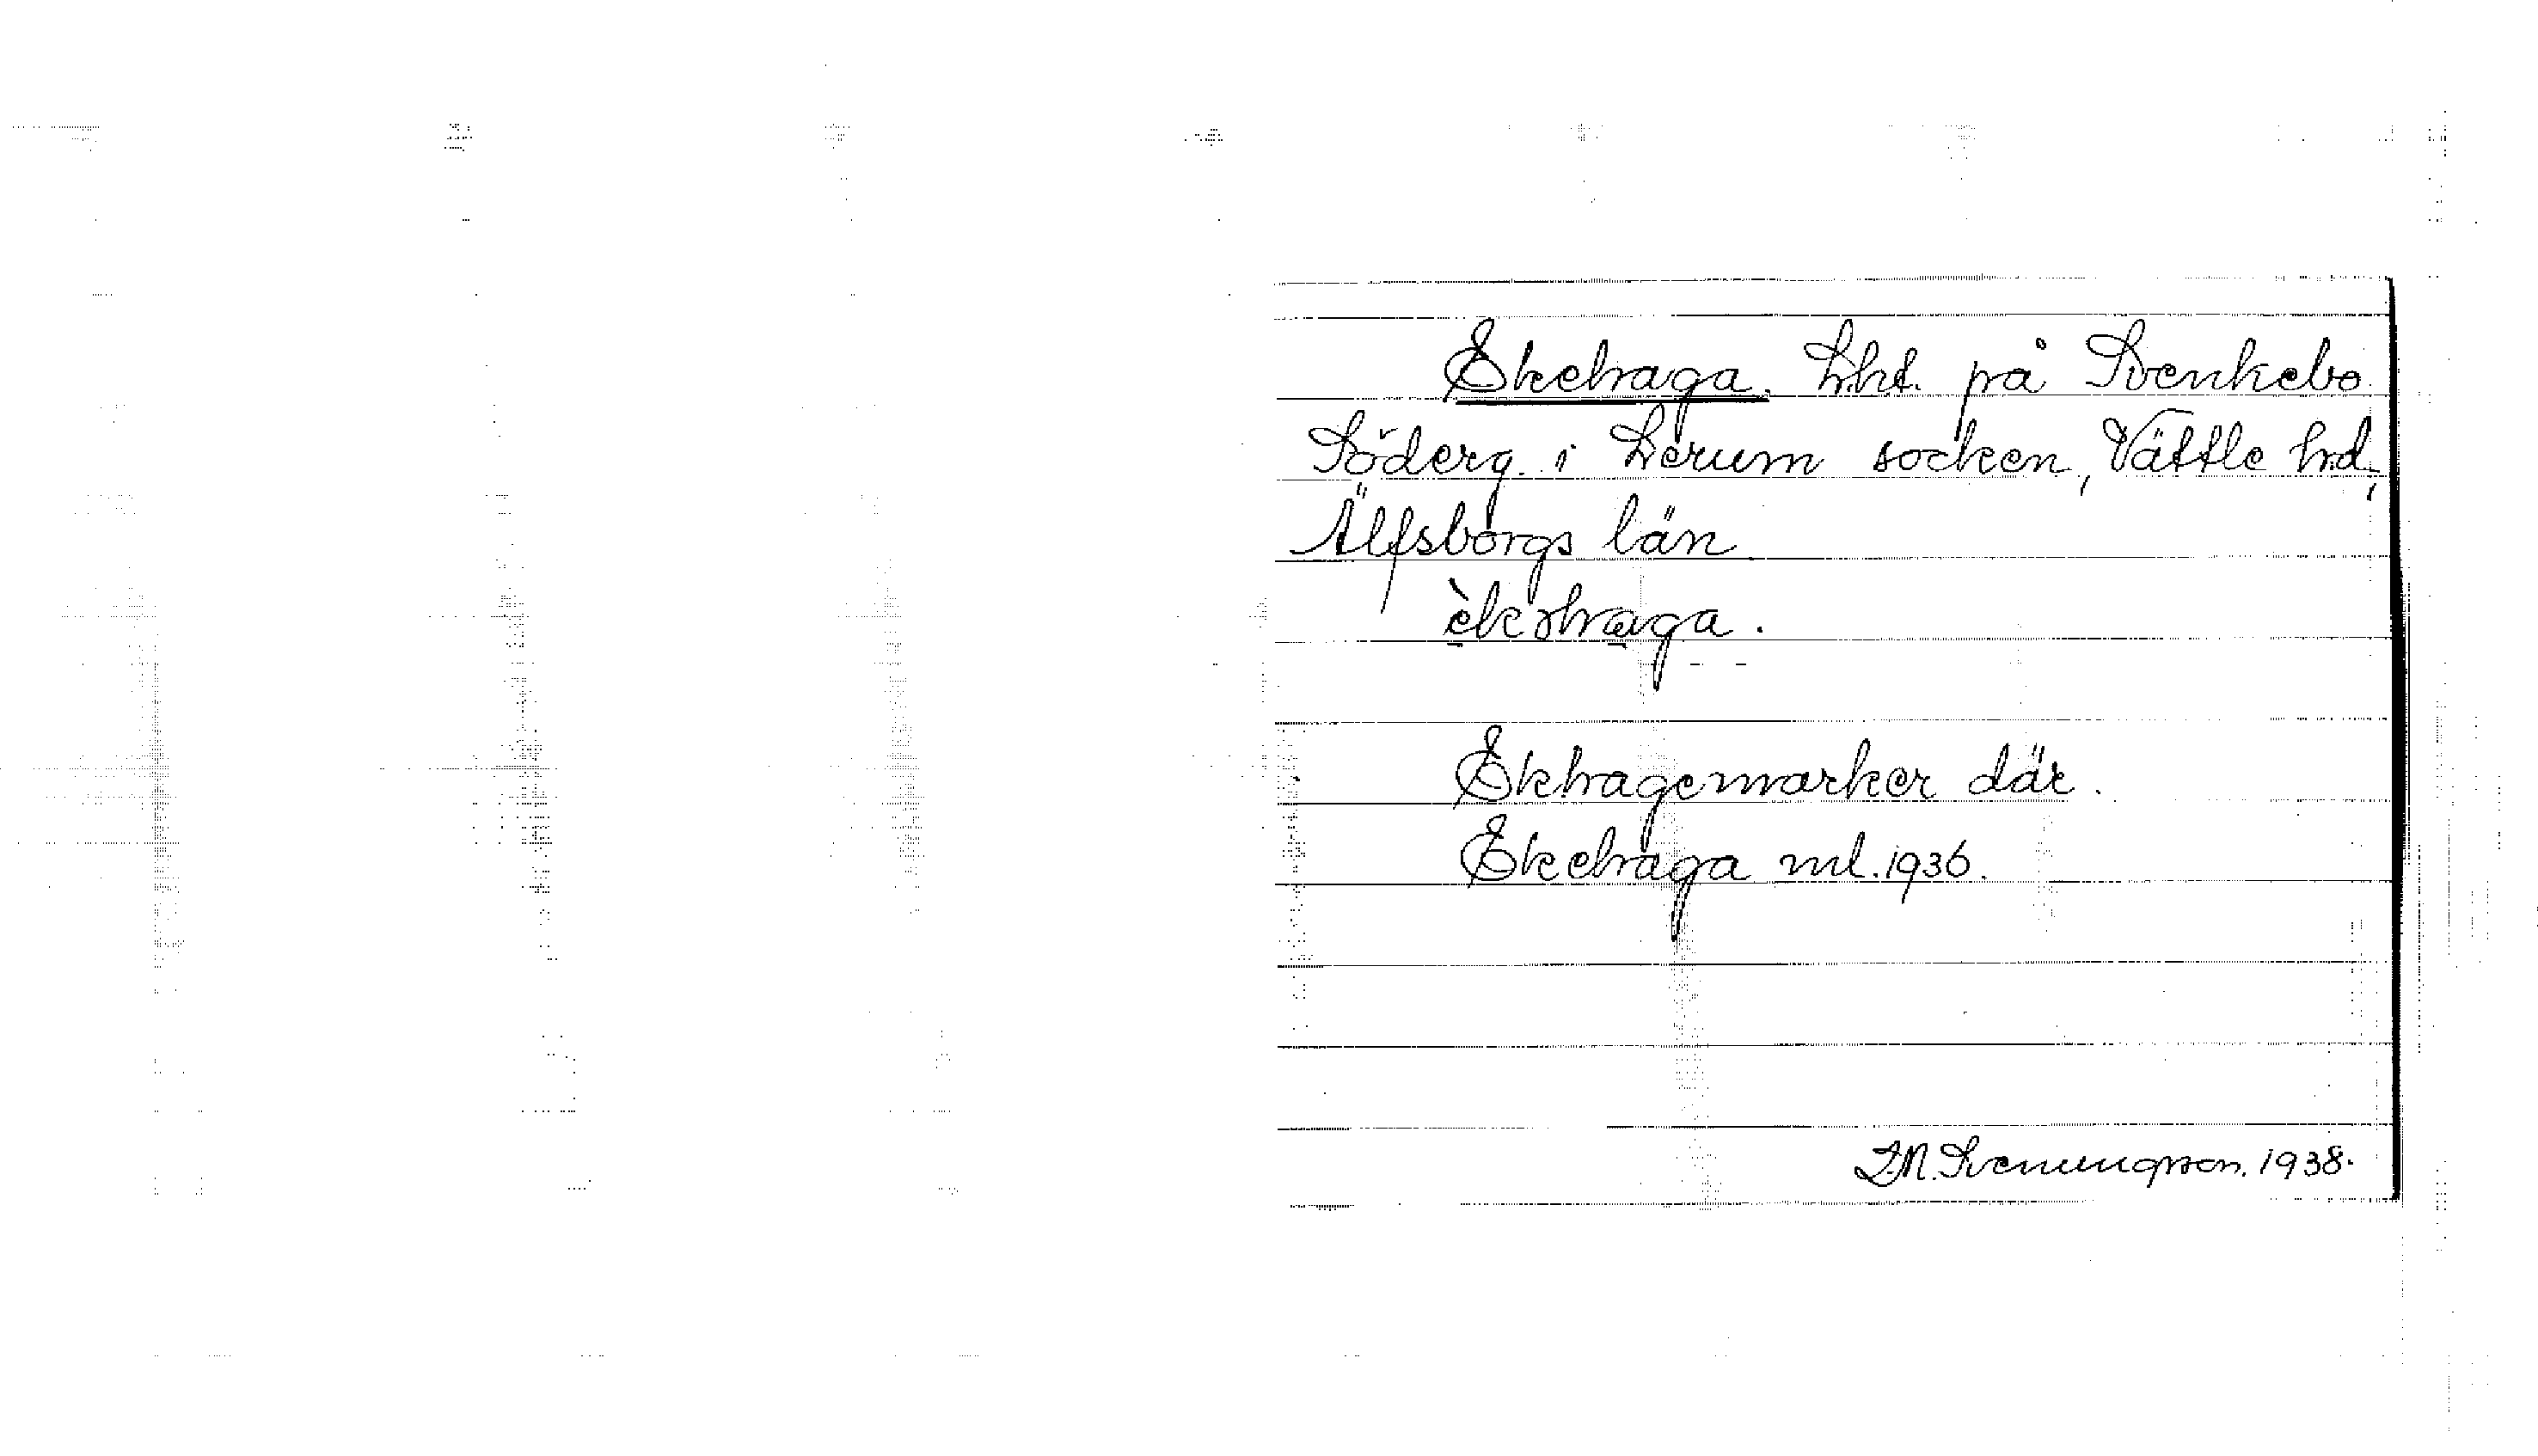 Ekehaga. Lht. på Svenkebo
Söderg. i Lerum socken, Vättle hd,
Älfsborgs län
èkəhaga.
Ekhagemarker där.
Ekehaga ml. 1936.
Svenungsson. 1938.